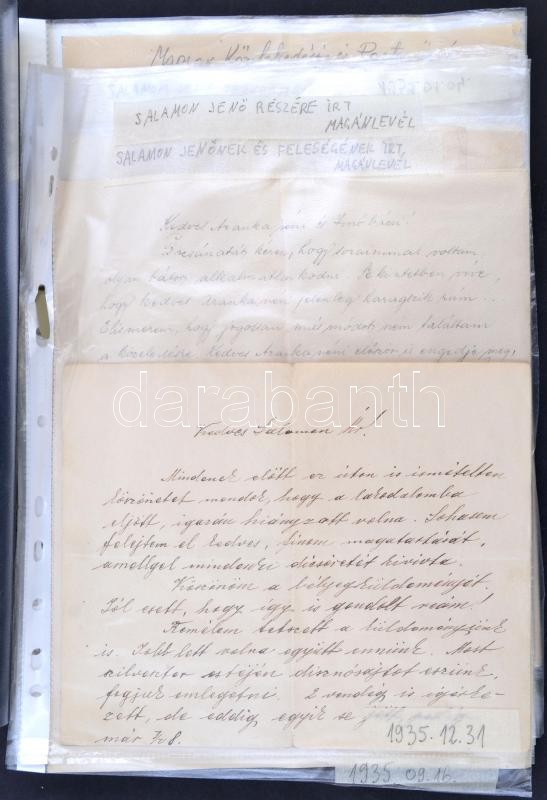 Magyar Közlekedési és
SALAMON JENŐ RÉSZÉRE ÍRT
MAGÁNLEVÉL
SALAMON JENŐNEK ÉS FELESÉGÉNEK ÍRT,
MAGÁNLEVÉL
Kedves Aranka néni és Jenő bácsi!
Bocsánatát kérem, hogy soraimmal voltam
olyan bátor alkalmatlankodni. Tekintetben véve,
hogy kedves Aranka néni jelenleg haragszik rám...
Elismerem, hogy jogosan más módot nem találtam
a közeledésre. Kedves Aranka néni először is engedje meg,
darabanth
Kedves Salamon Úr!
Mindenek előtt ez úton is ismételten
köszönetet mondok, hogy a lakodalomba
eljött, igazán hiányzott volna. Sohasem
felejtem el kedves, finom magatartását,
amellyel mindenki dícséretét kivívta.
Köszönöm a bélyegküldeményét.
Jól esett, hogy így is gondolt reám!
Remélem tetszett a küldeményünk
is. Jobb lett volna együtt ennünk. Most
szilveszter estéjén disznósajtot eszünk,
fogjuk emlegetni. 2 vendég is igérke-
zett, de eddig egyik se
már 1/2 8.
1935.12.31
1935.09.16.